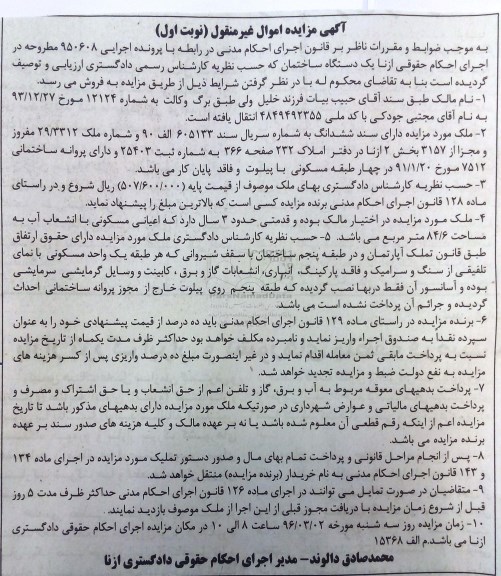 آگهی مزایده اموال غیرمنقول (نوبت اول)
به موجب ضوابط و مقررات ناظر بر قانون اجرای احکام مدنی در رابطه با پرونده اجرایی ۹۵۰۶۰۸ مطروحه در
اجرای احکام حقوقی ازنا یک دستگاه ساختمان که حسب نظریه کارشناس رسمی دادگستری ارزیابی و توصیف
گردیده است بنا به تقاضای محکوم له با در نظر گرفتن شرایط ذیل از طریق مزایده به فروش می رسد.
۱- نام مالک طبق سند آقای حبیب بیات فرزند خلیل ولی طبق برگ وکالت به شماره ۱۲۱۲۴ مورخ ۹۳/۱۲/۲۷
به نام آقای مجتبی جودکی با کد ملی ۴۸۴۹۴۹۲۳۵۵ انتقال یافته است.
۲- ملک مورد مزایده دارای سند ششدانگ به شماره سریال سند ۶۰۵۱۳۳ الف ۹۰ و شماره ملک ۲۹/۳۳۱۲ مفروز
و مجزا از ۳۱۵۷ بخش ۲ ازنا در دفتر املاک ۲۳۲ صفحه ۳۶۶ به شماره ثبت ۲۵۴۰۳ و دارای پروانه ساختمانی
۷۵۱۲ مورخ ۹۱/۱/۲۰ در چهار طبقه مسکونی با پیلوت و فاقد پایان کار می باشد.
۳- حسب نظریه کارشناس دادگستری بهای ملک موصوف از قیمت پایه (۵۰۷/۶۰۰/۰۰۰) ریال شروع و در راستای
ماده ۱۲۸ قانون اجرای احکام مدنی برنده مزایده کسی است که بالاترین مبلغ را پیشنهاد نماید.
۴- ملک مورد مزایده در اختیار مالک بوده و قدمتی حدود ۳ سال دارد که اعیانی مسکونی با انشعاب آب به
مساحت ۸۴/۶ متر مربع می باشد. ۵- حسب نظریه کارشناس دادگستری ملک مورد مزایده دارای حقوق ارتفاق
طبق قانون تملک آپارتمان و در طبقه پنجم ساختمان با سقف شیروانی که هر طبقه یک واحد مسکونی با نمای
تلفیقی از سنگ و سرامیک و فاقد پارکینگ، انباری، انشعابات گاز و برق، کابینت و وسایل گرمایشی سرمایشی
بوده و آسانسور آن فقط دربها نصب گردیده که طبقه پنجم روی پیلوت خارج از مجوز پروانه ساختمانی احداث
گردیده و جرائم آن پرداخت نشده است می باشد.
۶- برنده مزایده در راستای ماده ۱۲۹ قانون اجرای احکام مدنی باید ده درصد از قیمت پیشنهادی خود را به عنوان
سپرده نقدا به صندوق اجراء واریز نماید و نامبرده مکلف خواهد بود حداکثر ظرف مدت یکماه از تاریخ مزایده
نسبت به پرداخت مابقی ثمن معامله اقدام نماید و در غیر اینصورت مبلغ ده درصد واریزی پس از کسر هزینه های
مزایده به نفع دولت ضبط و مزایده تجدید خواهد شد.
۷- پرداخت بدهیهای معوقه مربوط به آب و برق، گاز و تلفن اعم از حق انشعاب و یا حق اشتراک و مصرف و
پرداخت بدهیهای مالیاتی و عوارض شهرداری در صورتیکه ملک مورد مزایده دارای بدهیهای مذکور باشد تا تاریخ
مزایده اعم از اینکه رقم قطعی آن معلوم شده باشد یا نه بر عهده مالک و کلیه هزینه های صدور سند بر عهده
برنده مزایده می باشد.
۸- پس از انجام مراحل قانونی و پرداخت تمام بهای مال و صدور دستور تملیک مورد مزایده در اجرای ماده ۱۳۴
و ۱۴۳ قانون اجرای احکام مدنی به نام خریدار (برنده مزایده) منتقل خواهد شد.
۹- متقاضیان در صورت تمایل می توانند در اجرای ماده ۱۲۶ قانون اجرای احکام مدنی حداکثر ظرف مدت ۵ روز
قبل از شروع زمان مزایده با دریافت مجوز قبلی از این اجرا از ملک موصوف بازدید نمایند.
۱۰- زمان مزایده روز سه شنبه مورخه ۹۶/۰۳/۰۲ ساعت ۸ الی ۱۰ در مکان مزایده اجرای احکام حقوقی دادگستری
ازنا می باشد.م الف ۱۵۳۶۸
محمدصادق دالوند - مدیر اجرای احکام حقوقی دادگستری ازنا